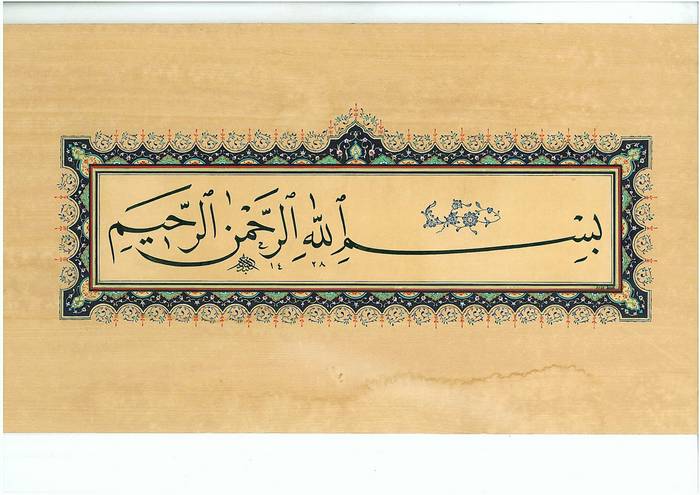 بِسْمِ ٱللّٰهِ ٱلرَّحْمٰنِ ٱلرَّحِيْمِ
١٤٢٨